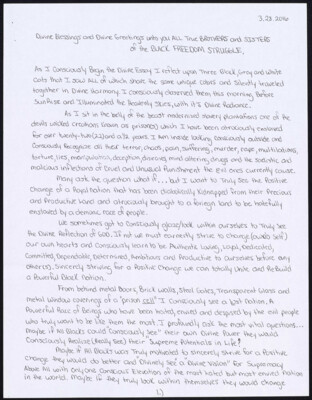 3.23.2016
Divine Blessings and Divine Greetings unto you All True BROTHERS and SISTERS
of the BLACK FREEDOM STRUGGLE,
As I Consciously Begin the Divine Essay I reflect upon Three Black/Gray and White
Cats that I saw All of which share the same unique colors and silently traveled
together in Divine Harmony I consciously observed them this morning Before
Sun Rose and Illuminated the heavenly skies, with it's Divine Radiance.
As I sit in the belly of the beast modernized slavery plantations one of the
devils wicked creations known as prison(s) which I have been atrociously enslaved
for over twenty-two(22)and a ½ years I Am inside looking consciously outside and
Consciously Recognize all their terror, chaos, pain, suffering, murder, rape,
torture, lies, manipulation, deception, mind altering, drugs and the sadistic and
malicious inflictions of Cruel and Unusual Punishment the evil ones currently cause.
Many ask the question what if... but I want to Truly see the Positive
Change of a Rapid Nation that has been diabolically Kidnapped from their Precious
and Productive land and atrociously brought to a foreign land to be hatefully
enslaved by a demonic race of people.
We sometimes got to Consciously look within ourselves to Truly See
the Divine Reflection of GOD. If not we must earnestly strive to change
our own hearts and Consciously learn to be Authentic Loving, Loyal, Dedicated,
Committed, Dependable, Determined, Ambitious and Productive to Ourselves before any
other(s). Sincerely Striving for a Positive Change we can totally Unite and ReBuild
a Powerful Black Nation.
From behind metal Doors, Brick Walls, Steel Gates, Transparent Glass and
metal window coverings of a "prison cell" I Consciously see a Lost Nation, A
Powerful Race of Beings who have been hated, envied and despised by the evil people
who truly want to be like them the most. I profoundly ask the most vital questions...
Maybe if All Blacks could "Consciously See" their own Divine Power they would
Consciously Realize (Really See) their Supreme Potentials in Life!
Maybe if All Blacks was Truly motivated to sincerely strive for a Positive
Change they would do better and Divinely See "a Divine Vision" for Supremacy
Above All with only one Conscious Elevation of the most hated but most envied Nation
in the world. Maybe if they truly look within themselves they would change
1)